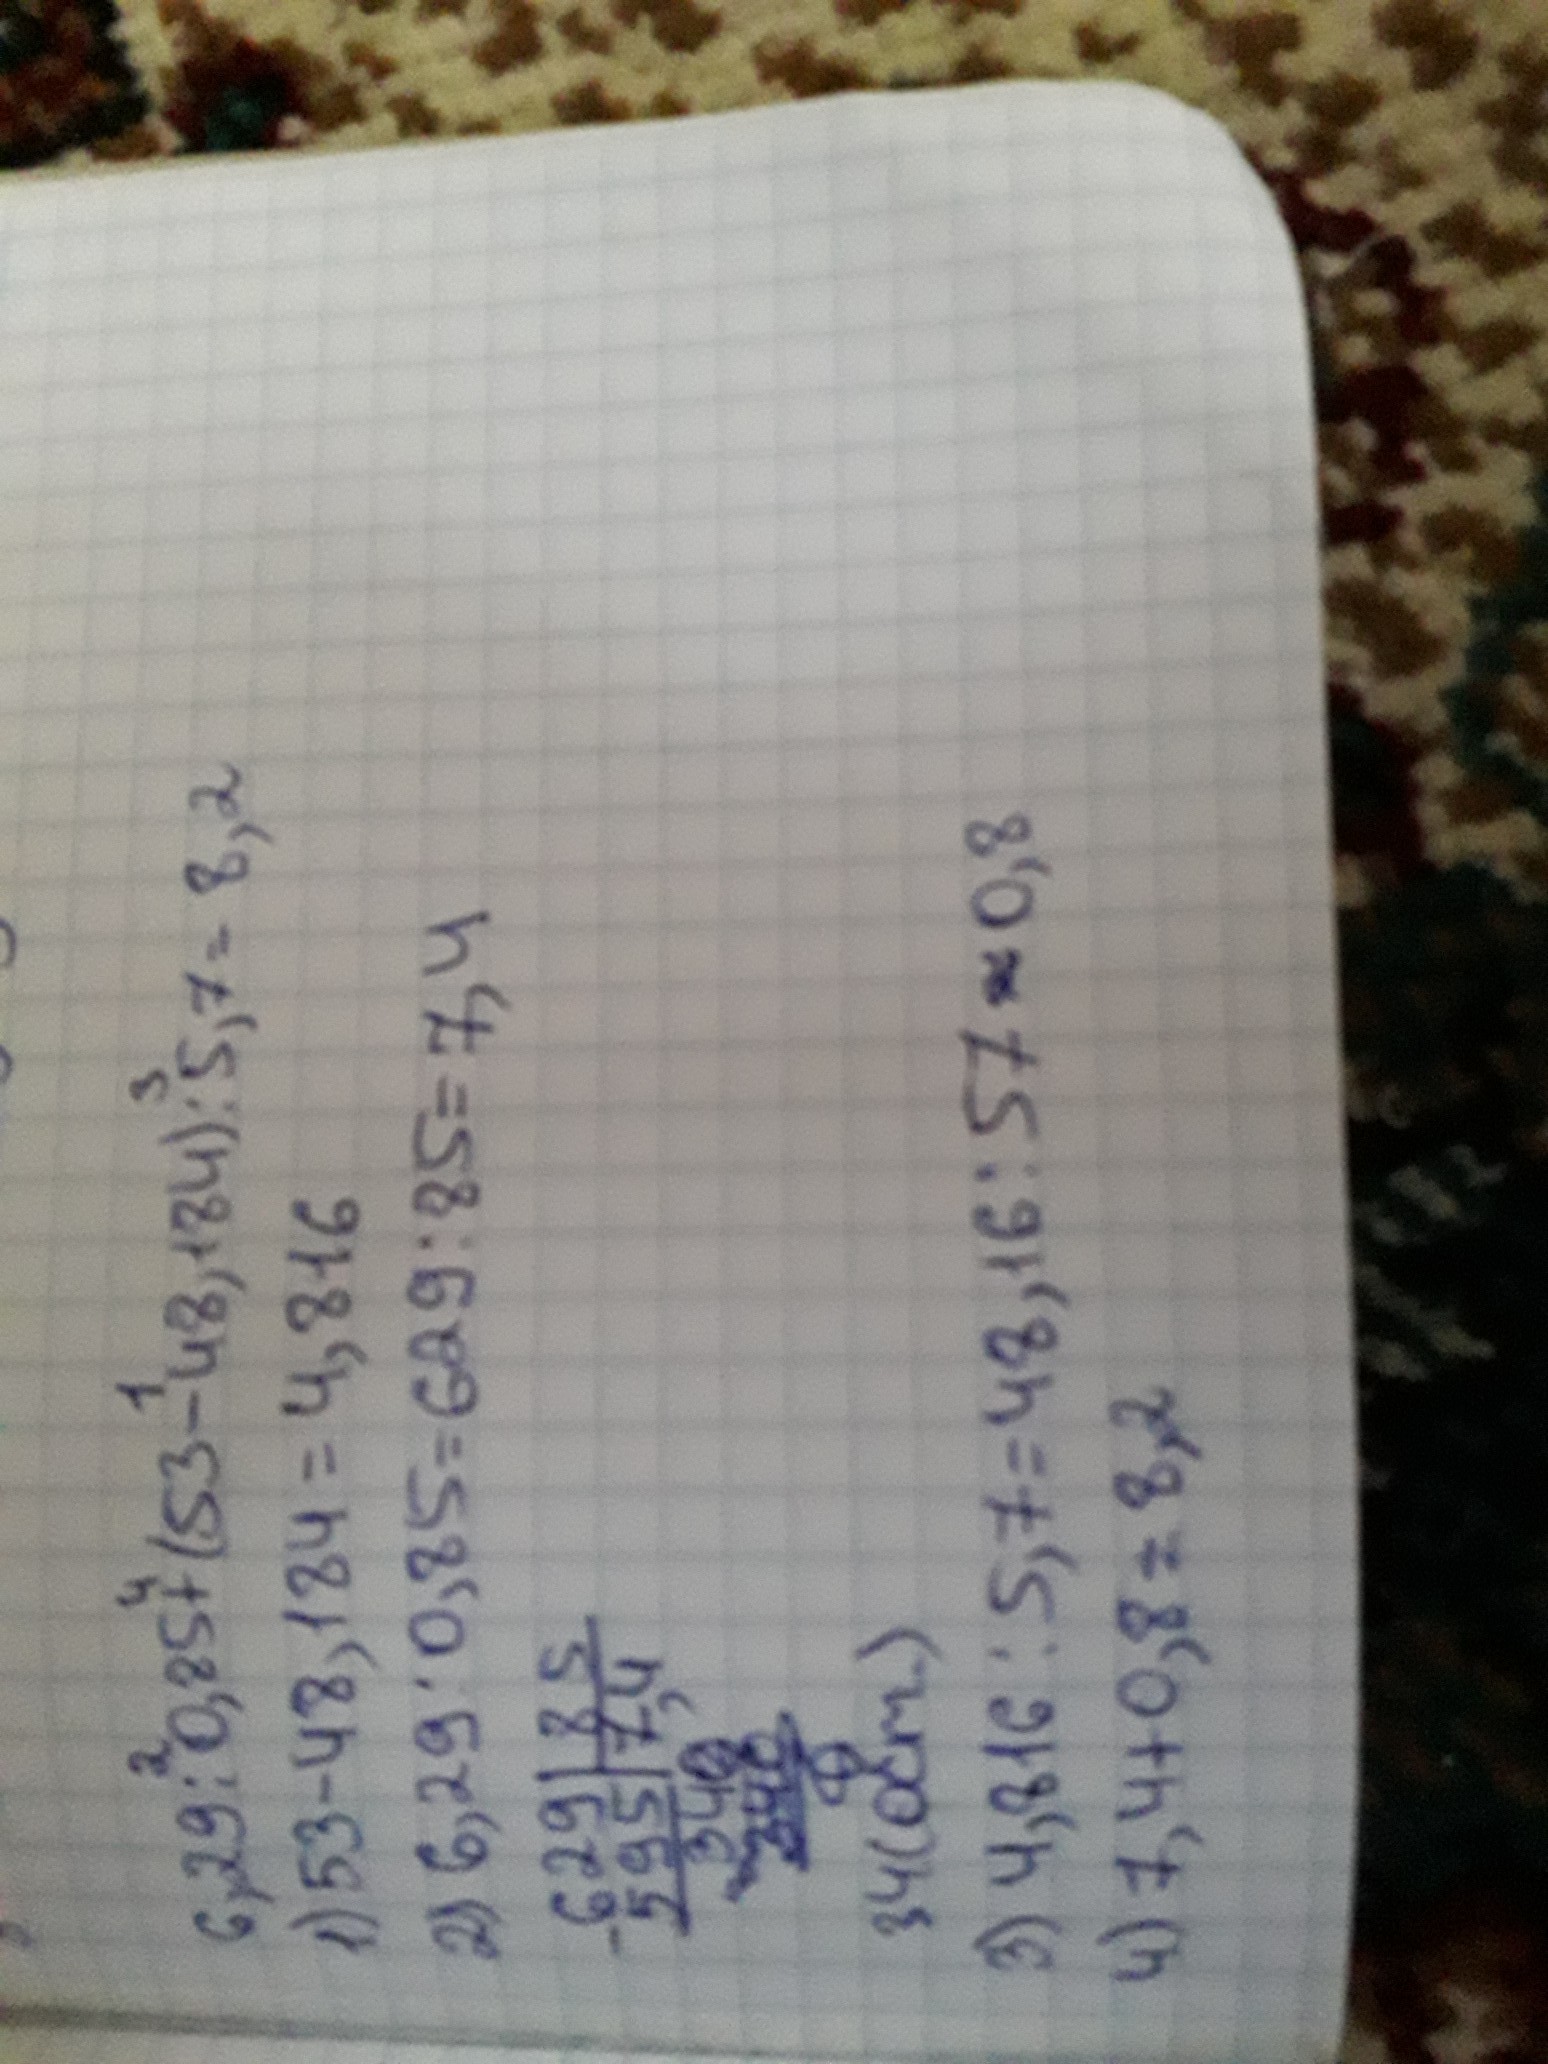 2 4 1 3
6,29:0,85+(53-48,184):5,7=8,2
1) 53-48,184=4,816
2) 6,29:0,85=629:85=7,4
-629|85
595|7,4
-340
340
0
34(ост.)
3) 4,816:5,7=48,16:57≈0,8
4) 7,4+0,8=8,2